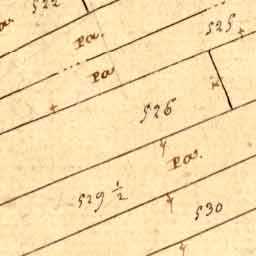 a. 522
Pa.
525
Pa
526
Pa.
529 1/2
530